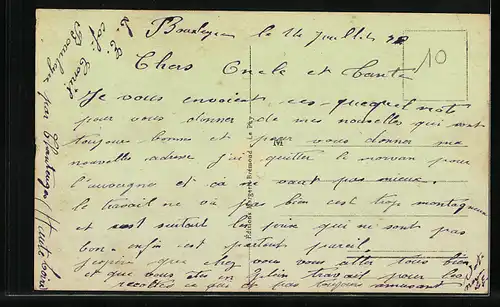 le 14 Juillet
10
Chers Oncle et Tante
Je vous envoient ces quequel mots
pour vous donner de mes nouvelles qui sont
toujours bonne et pour vous donner ma
nouvelles adresse j'ai quitter le morvan pour
l'auvergne et ça ne vaut pas mieux.
le travail ne va pas bien cest trop montagneux
et surtout les prix qui ne sont pas
bon. enfin est partout pareil
j'espère que chez vous vous aller tous bien
et que vous êtes en plein travail pour les
récoltes ce qui est pas toujours amusant
Boulogne par
Haute Loire
Editions Margerit-Brémond - Le Puy